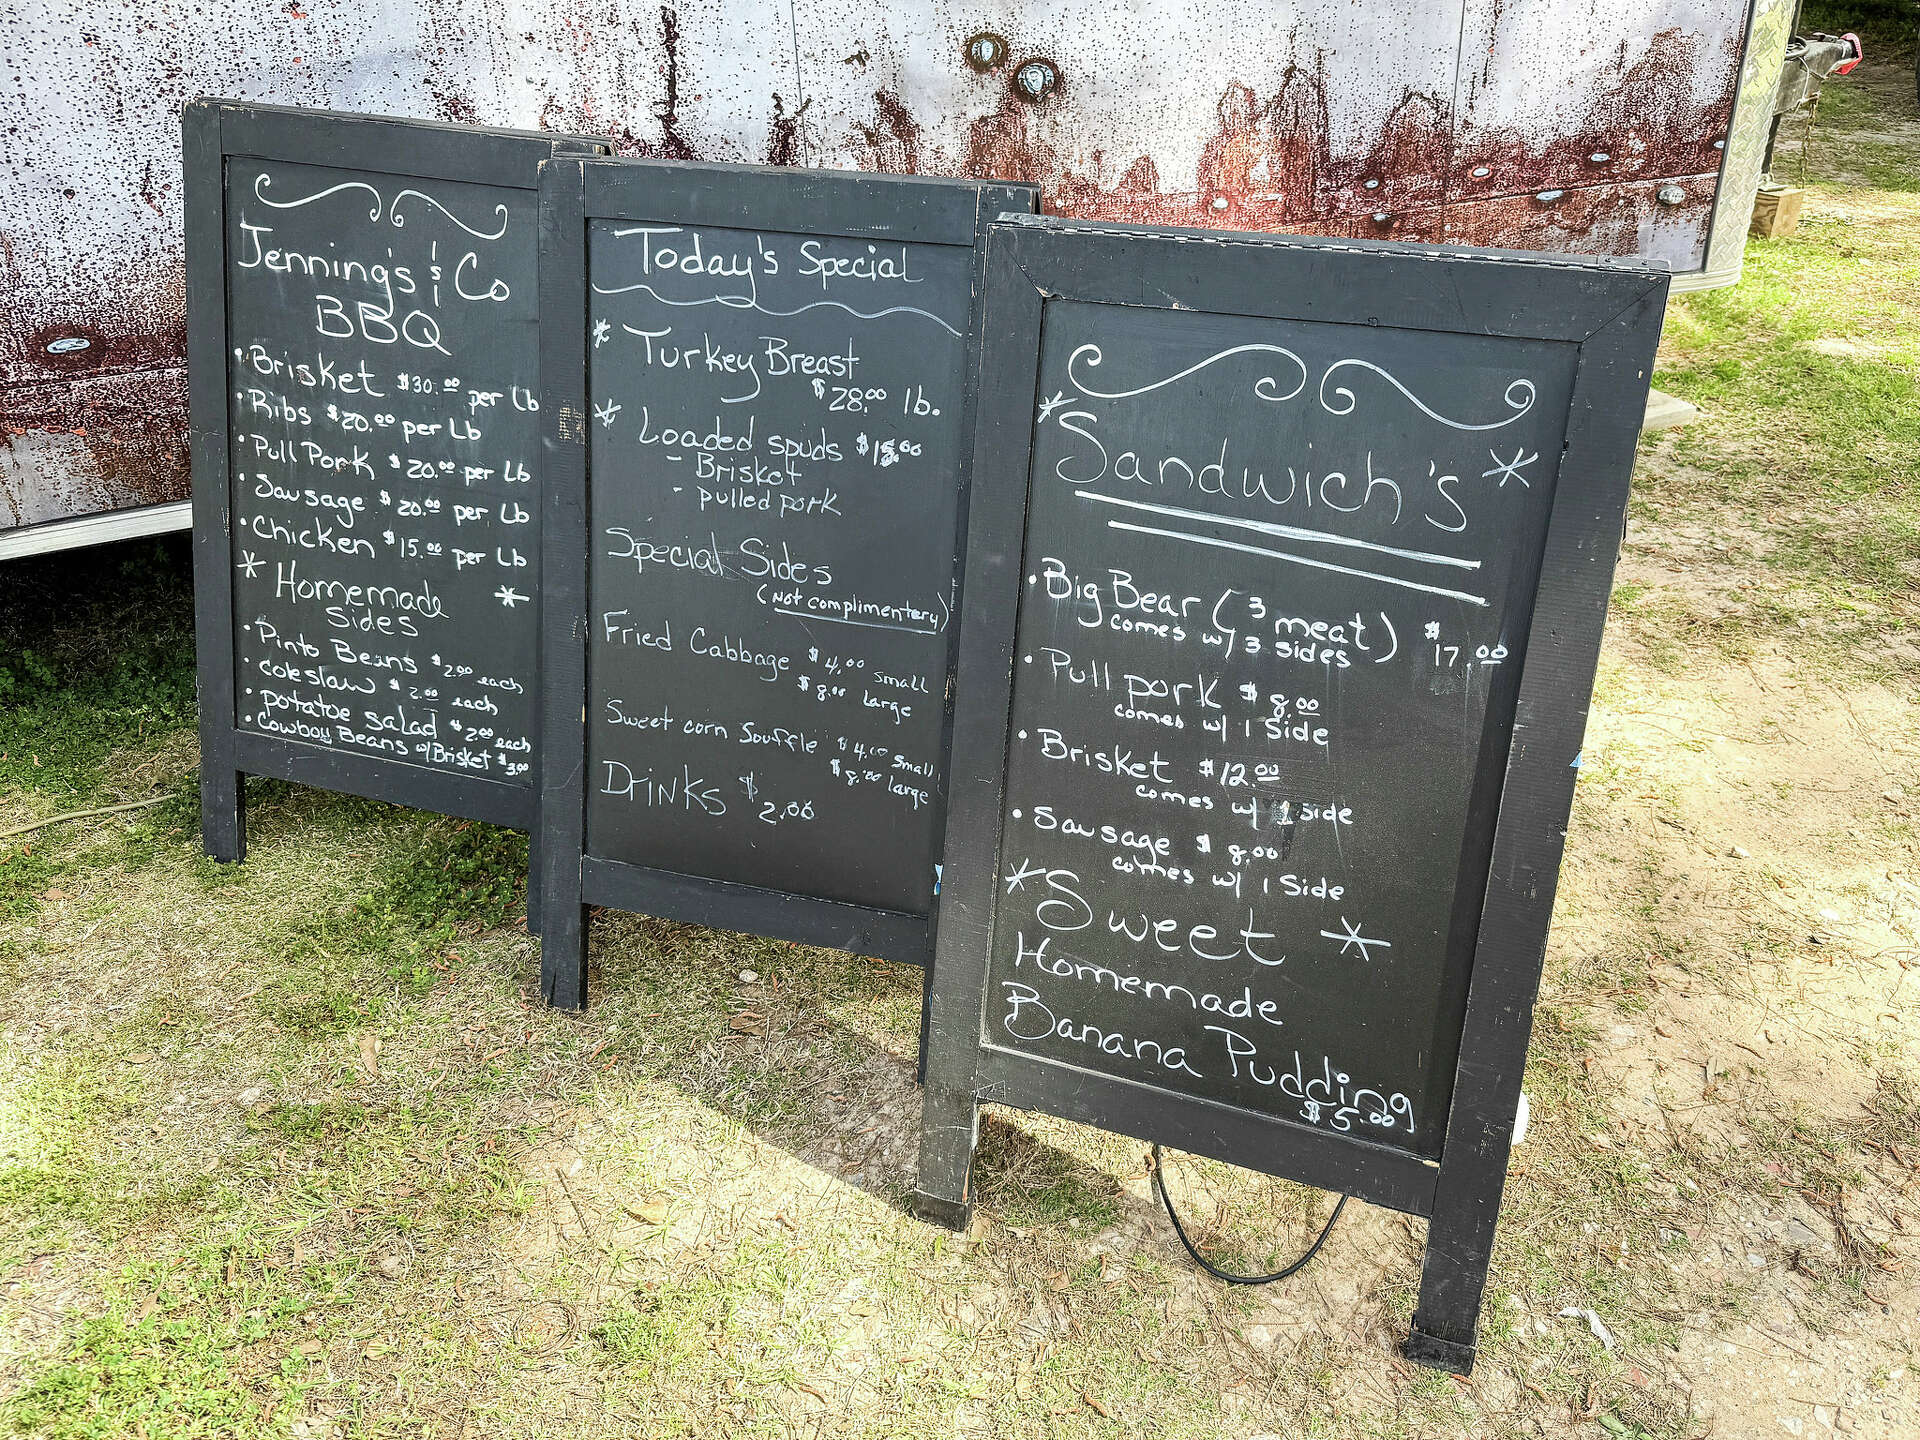 Jenning's & Co
BBQ
• Brisket $30.00 per Lb
• Ribs $20.00 per Lb
• Pull Pork $20.00 per Lb
• Sausage $20.00 per Lb
• Chicken $15.00 per Lb
* Homemade *
Sides
• Pinto Beans $2.00 each
• coleslaw $2.00 each
• potatoe salad $2.00 each
• Cowboy Beans w/Brisket $3.00
Today's Special
* Turkey Breast
$28.00 lb.
* Loaded spuds $15.00
- Brisket
- pulled pork
Special Sides
(Not complimentery)
Fried Cabbage $4.00 small
$8.00 Large
Sweet corn Souffle $4.00 small
$8.00 large
Drinks $2.00
*Sandwich's*
• Big Bear (3 meat) $17.00
comes w/ 3 sides
• Pull pork $8.00
comes w/ 1 side
• Brisket $12.00
comes w/ 1 side
• Sausage $8.00
comes w/ 1 Side
*Sweet *
Homemade
Banana Pudding
$5.00